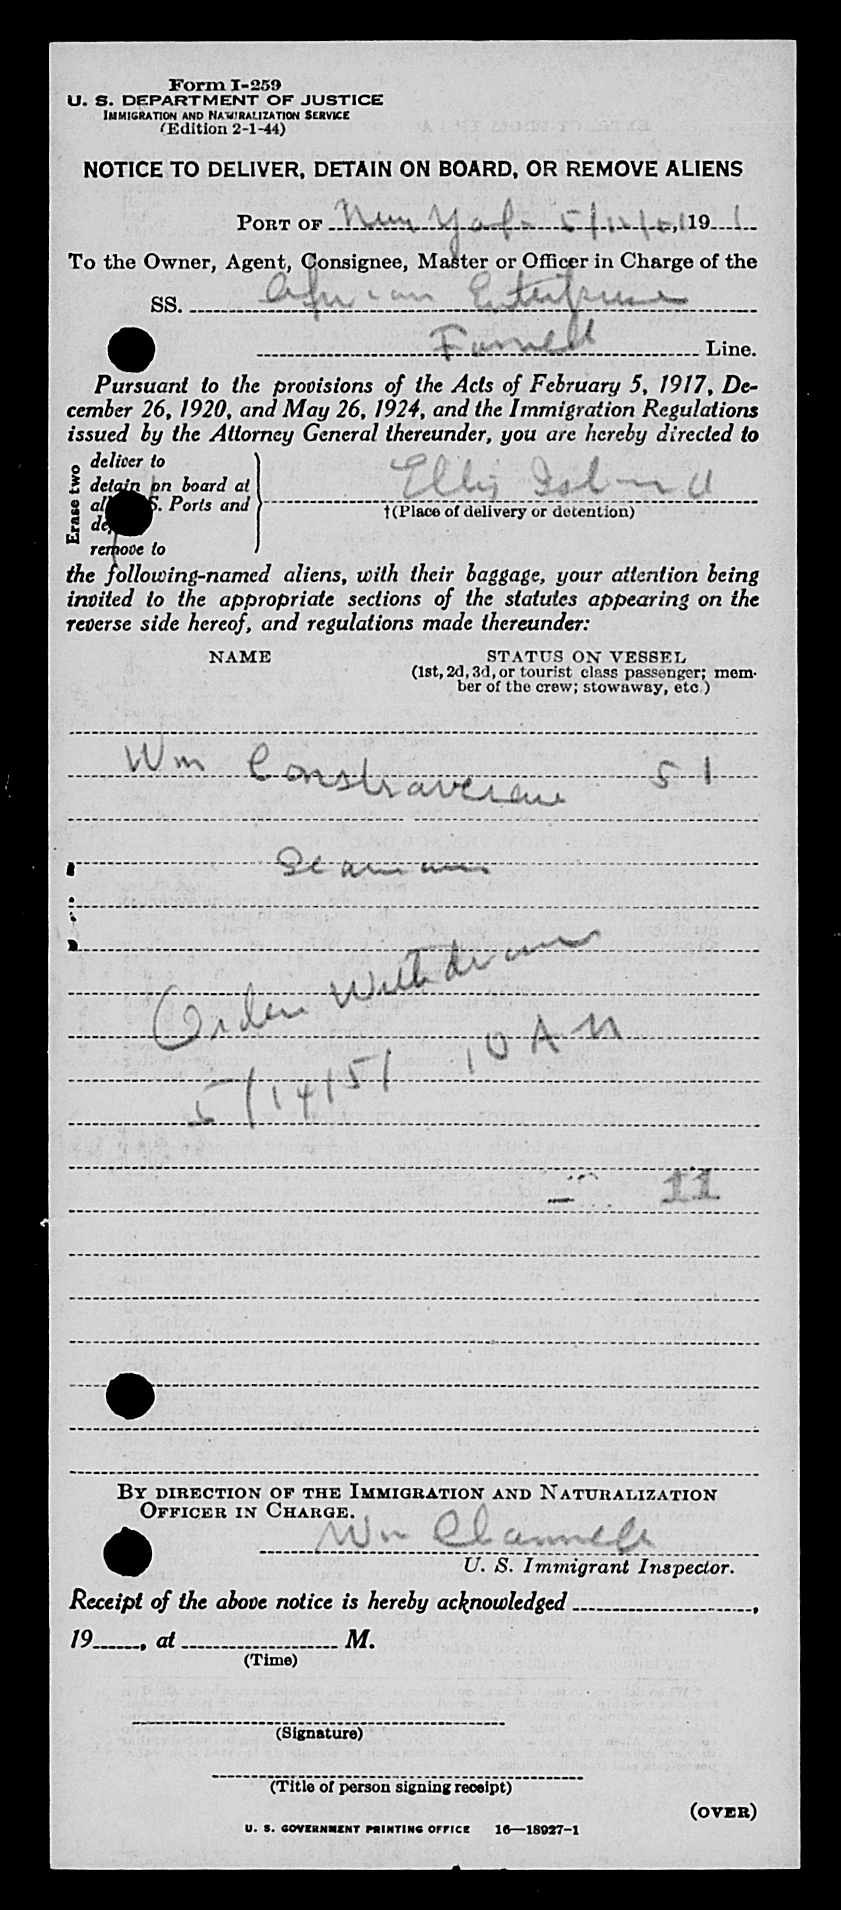 Form I-259
U. S. DEPARTMENT OF JUSTICE
IMMIGRATION AND NATURALIZATION SERVICE
(Edition 2-1-44)
NOTICE TO DELIVER, DETAIN ON BOARD, OR REMOVE ALIENS
PORT OF New York 5/12/51, 19 1
To the Owner, Agent, Consignee, Master or Officer in Charge of the
SS. African Enterprise
Farrell Line.
Pursuant to the provisions of the Acts of February 5, 1917, De-
cember 26, 1920, and May 26, 1924, and the Immigration Regulations
issued by the Attorney General thereunder, you are hereby directed to
Erase two
deliver to
detain on board at
S. Ports and
remove to
Ellis Island
†(Place of delivery or detention)
the following-named aliens, with their baggage, your attention being
invited to the appropriate sections of the statutes appearing on the
reverse side hereof, and regulations made thereunder:
NAME STATUS ON VESSEL
(1st, 2d, 3d, or tourist class passenger; mem-
ber of the crew; stowaway, etc.)
Wm 51
Seaman
Order Withdrawn
5/14/51 10 AM
11
BY DIRECTION OF THE IMMIGRATION AND NATURALIZATION
OFFICER IN CHARGE.
Wm
U. S. Immigrant Inspector.
Receipt of the above notice is hereby acknowledged ,
19 , at M.
(Time)
(Signature)
(Title of person signing receipt)
(OVER)
U. S. GOVERNMENT PRINTING OFFICE 16—18927-1